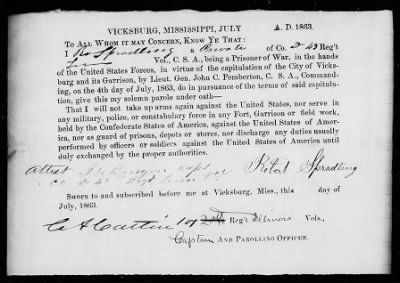 VICKSBURG, MISSISSIPPI, JULY A. D. 1863.
TO ALL WHOM IT MAY CONCERN, KNOW YE THAT:
I Ro Spradling a Private of Co. D 43 Reg't
Tenn Vol., C. S. A., being a Prisoner of War, in the hands
of the United States Forces, in virtue of the capitulation of the City of Vicks-
burg and its Garrison, by Lieut. Gen. John C. Pemberton, C. S. A., Command-
ing, on the 4th day of July, 1863, do in pursuance of the terms of said capitula-
tion, give this my solemn parole under oath—
That I will not take up arms again against the United States, nor serve in
any military, police, or constabulary force in any Fort, Garrison or field work,
held by the Confederate States of America, against the United States of Ame-
rica, nor as guard of prisons, depots or stores, nor discharge any duties usually
performed by officers or soldiers against the United States of America until
duly exchanged by the proper authorities.
Attest Robert Spradling
Sworn to and subscribed before me at Vicksburg, Miss., this day of
July, 1863.
Reg't Illinois Vols,
Captain AND PAROLLING OFFICER.